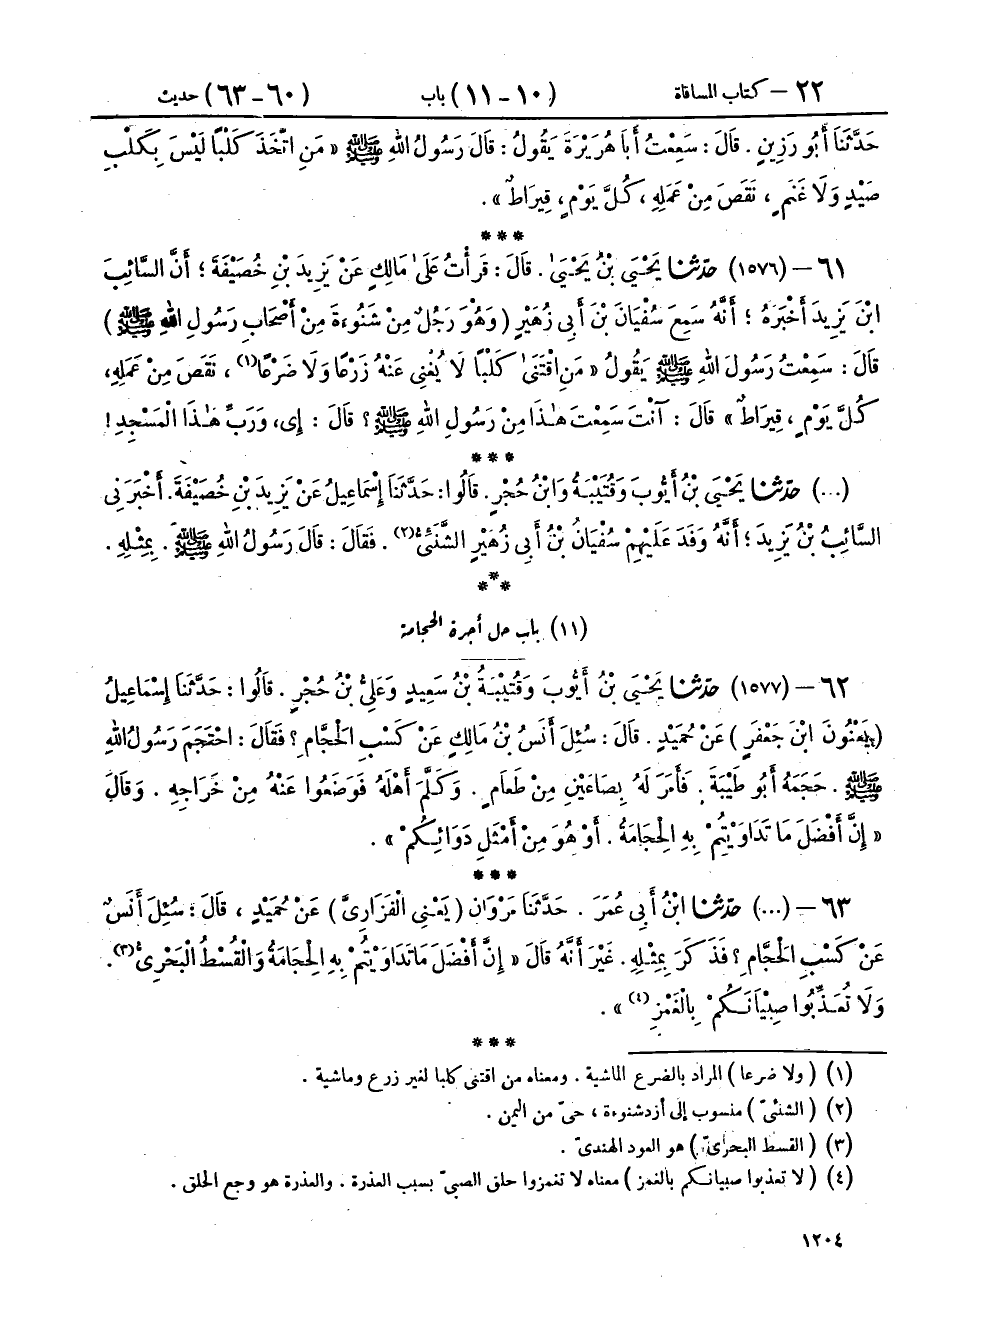 ٢٢ – كتاب المساقاة (١٠ – ١١) باب (٦٠ – ٦٣) حديث
حَدَّثَنَا أَبُو رَزِينٍ . قَالَ : سَمِعْتُ أَبَا هُرَيْرَةَ يَقُولُ : قَالَ رَسُولُ اللهِ ﷺ « مَنِ اتَّخَذَ كَلْبًا لَيْسَ بِكَلْبِ
صَيْدٍ وَلَا غَنَمٍ ، نَقَصَ مِنْ عَمَلِهِ ، كُلَّ يَوْمٍ ، قِيرَاطٌ » .
***
٦١ – (١٥٧٦) حدّثنا يَحْيَى بْنُ يَحْيَىٰ . قَالَ : قَرَأْتُ عَلَىٰ مَالِكٍ عَنْ يَزِيدَ بْنِ خُصَيْفَةَ ؛ أَنَّ السَّائِبَ
ابْنَ يَزِيدَ أَخْبَرَهُ ؛ أَنَّهُ سَمِعَ سُفْيَانَ بْنَ أَبِي زُهَيْرٍ ( وَهُوَ رَجُلٌ مِنْ شَنُوءَةَ مِنْ أَصْحَابِ رَسُولِ اللهِ ﷺ )
قَالَ : سَمِعْتُ رَسُولَ اللهِ ﷺ يَقُولُ « مَنِ اقْتَنَىٰ كَلْبًا لَا يُغْنِي عَنْهُ زَرْعًا وَلَا ضَرْعًا(١) ، نَقَصَ مِنْ عَمَلِهِ،
كُلَّ يَوْمٍ ، قِيرَاطٌ » قَالَ : آنْتَ سَمِعْتَ هَـٰذَا مِنْ رَسُولِ اللهِ ﷺ ؟ قَالَ : إِى، وَرَبِّ هَـٰذَا الْمَسْجِدِ !
***
(...) حدّثنا يَحْيَى بْنُ أَيُّوبَ وَقُتَيْبَةُ وَابْنُ حُجْرٍ . قَالُوا: حَدَّثَنَا إِسْمَاعِيلُ عَنْ يَزِيدَ بْنِ خُصَيْفَةَ. أَخْبَرَنِي
السَّائِبُ بْنُ يَزِيدَ ؛ أَنَّهُ وَفَدَ عَلَيْهِمْ سُفْيَانُ بْنُ أَبِي زُهَيْرٍ الشَّنَئِىُّ(٢) . فَقَالَ : قَالَ رَسُولُ اللهِ ﷺ . بِمِثْلِهِ .
***
(١١) باب حل أجرة الحجامة
٦٢ – (١٥٧٧) حدّثنا يَحْيَى بْنُ أَيُّوبَ وَقُتَيْبَةُ بْنُ سَعِيدٍ وَعَلِيُّ بْنُ حُجْرٍ . قَالُوا : حَدَّثَنَا إِسْمَاعِيلُ
(يَعْنُونَ ابْنَ جَعْفَرٍ ) عَنْ حُمَيْدٍ . قَالَ : سُئِلَ أَنَسُ بْنُ مَالِكٍ عَنْ كَسْبِ الْحَجَّامِ ؟ فَقَالَ : احْتَجَمَ رَسُولُ اللهِ
ﷺ . حَجَمَهُ أَبُو طَيْبَةَ . فَأَمَرَ لَهُ بِصَاعَيْنِ مِنْ طَعَامٍ . وَكَلَّمَ أَهْلَهُ فَوَضَعُوا عَنْهُ مِنْ خَرَاجِهِ . وَقَالَ
« إِنَّ أَفْضَلَ مَا تَدَاوَيْتُمْ بِهِ الْحِجَامَةُ . أَوْ هُوَ مِنْ أَمْثَلِ دَوَائِكُمْ » .
***
٦٣ – (...) حدّثنا ابْنُ أَبِي عُمَرَ . حَدَّثَنَا مَرْوَانُ ( يَعْنِي الْفَزَارِىَّ ) عَنْ حُمَيْدٍ ، قَالَ : سُئِلَ أَنَسٌ
عَنْ كَسْبِ الْحَجَّامِ ؟ فَذَكَرَ بِمِثْلِهِ . غَيْرَ أَنَّهُ قَالَ « إِنَّ أَفْضَلَ مَا تَدَاوَيْتُمْ بِهِ الْحِجَامَةُ وَالْقُسْطُ الْبَحْرِىُّ(٣).
وَلَا تُعَذِّبُوا صِبْيَانَكُمْ بِالْغَمْزِ(٤) » .
***
(١) ( ولا ضرعا ) المراد بالضرع الماشية . ومعناه من اقتنى كلبا لغير زرع وماشية .
(٢) ( الشنئىّ ) منسوب إلى أزدشنوءة ، حىّ من اليمن .
(٣) ( القسط البحرىّ ) هو العود الهندىّ .
(٤) ( لا تعذبوا صبيانكم بالغمز ) معناه لا تغمزوا حلق الصبىّ بسبب العذرة . والعذرة هو وجع الحلق .
١٢٠٤